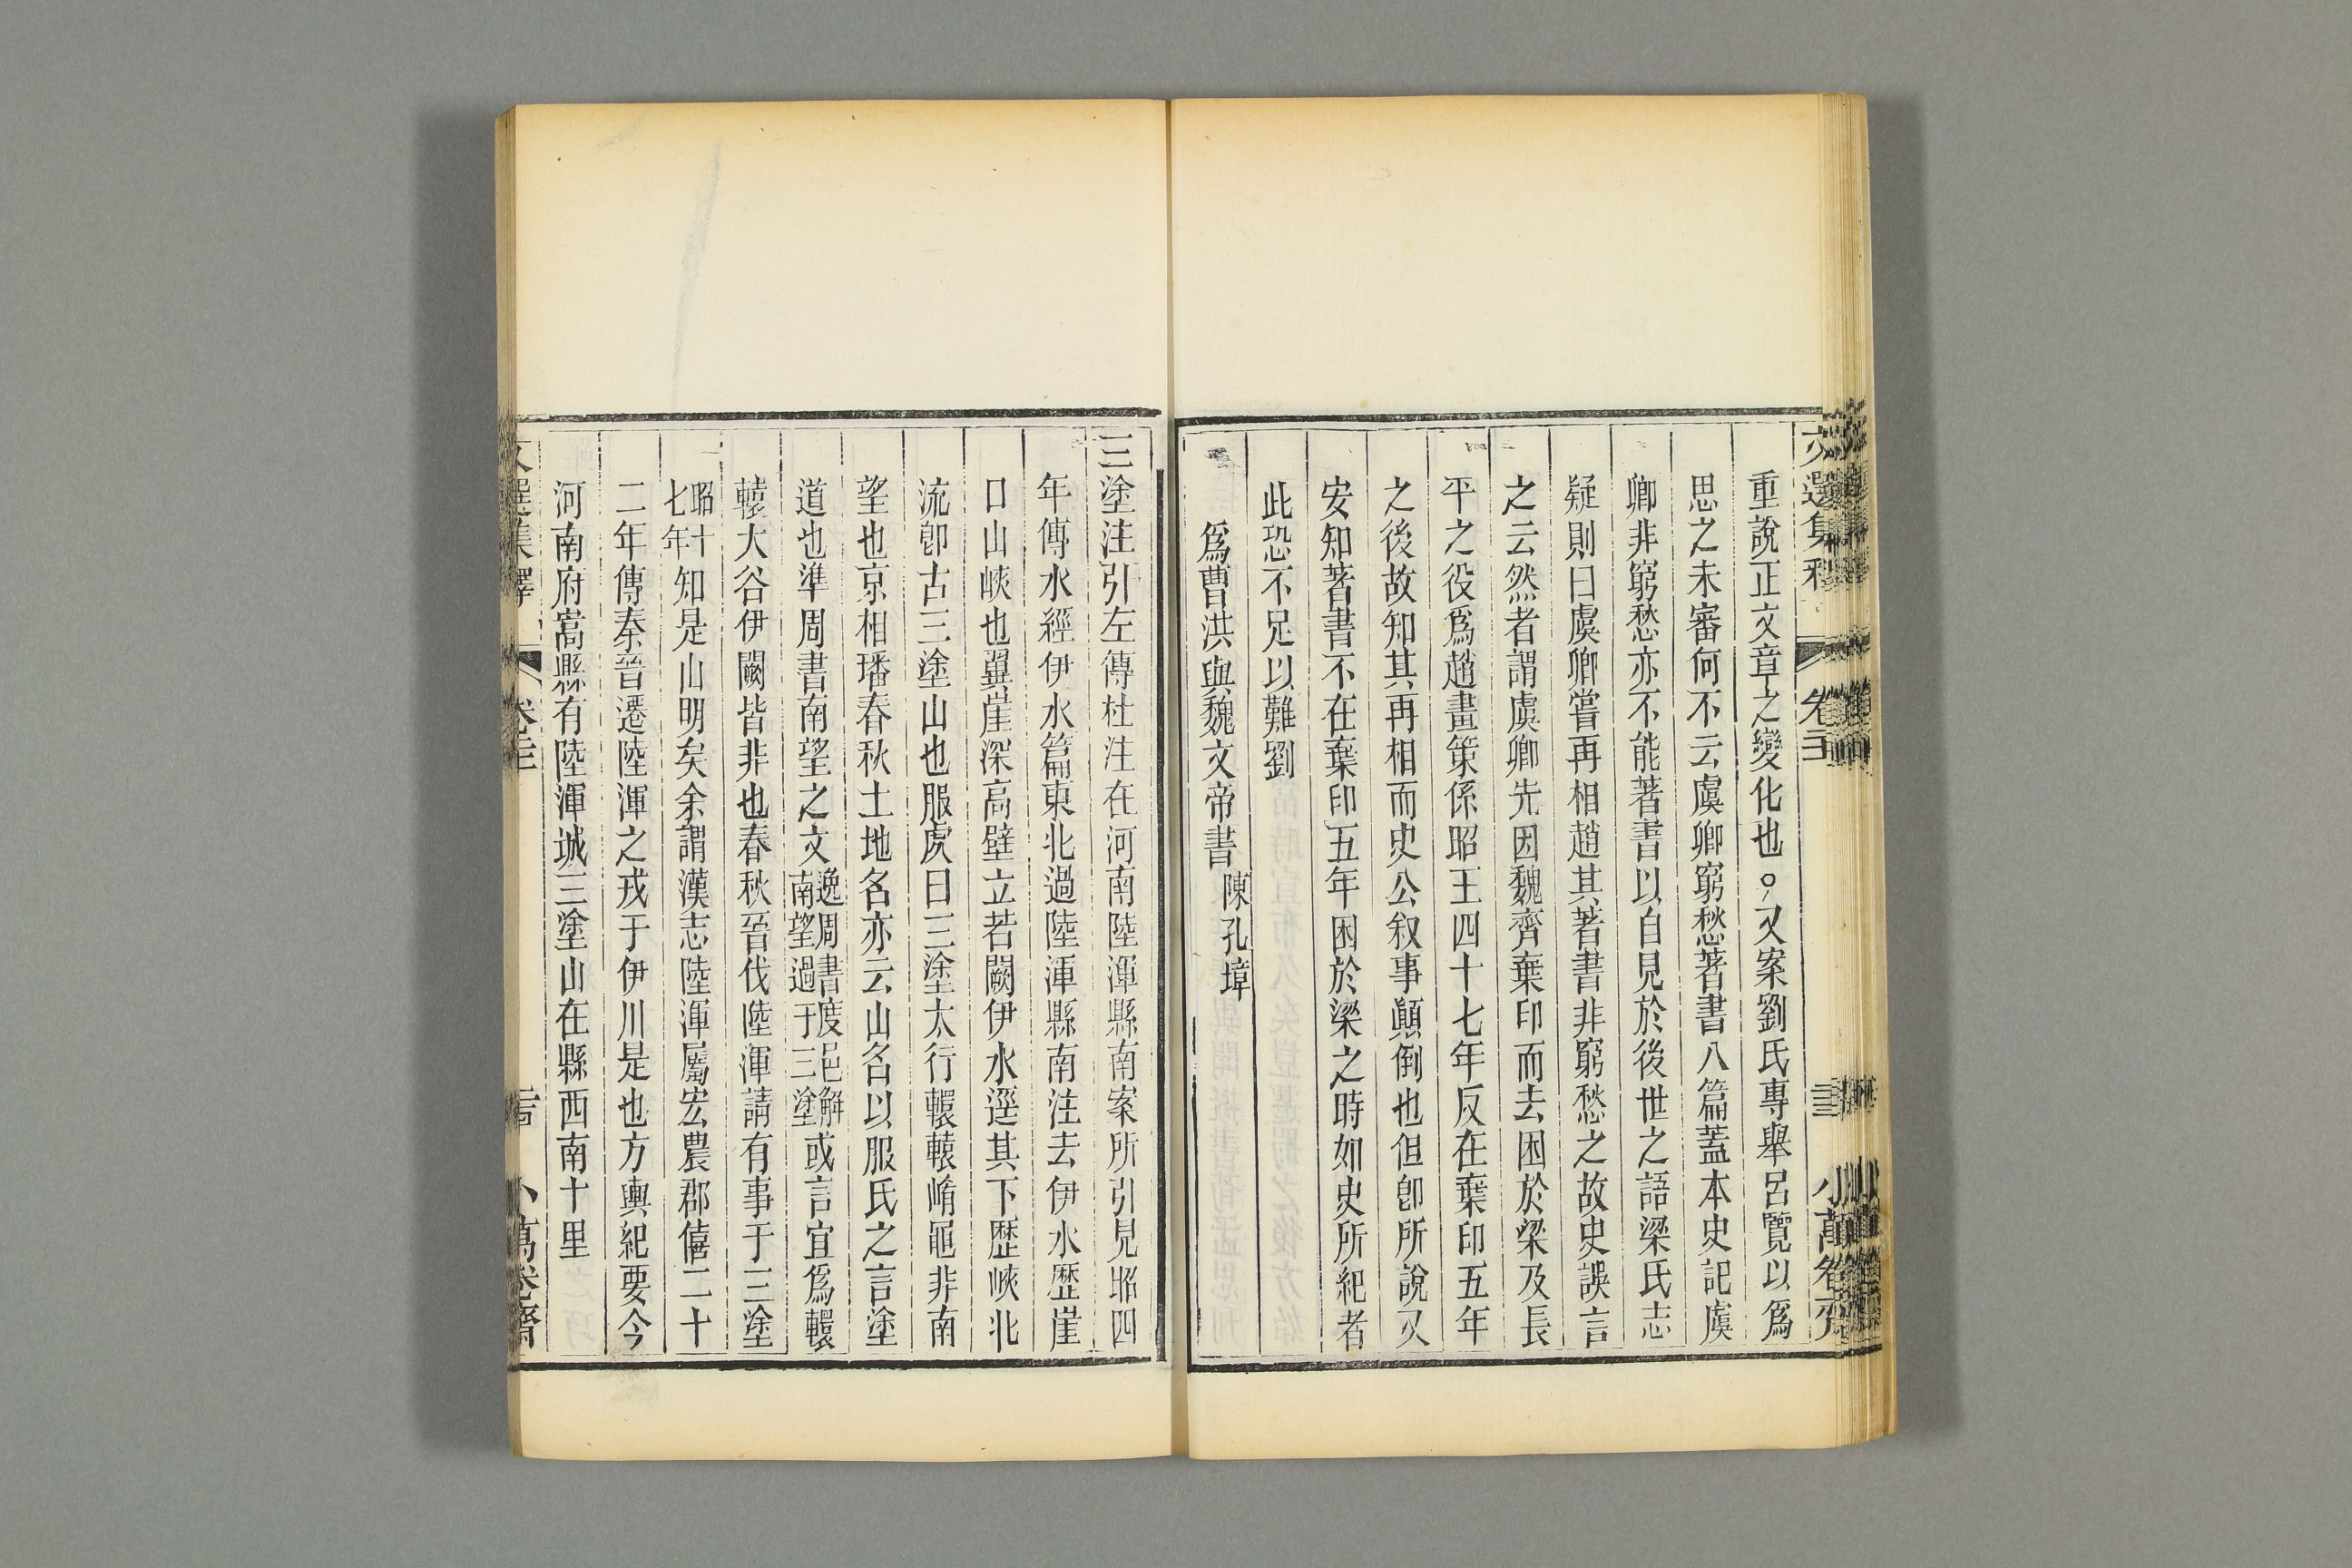 重說正文章之變化也。又案劉氏專舉呂覽以爲
思之未審何不云虞卿窮愁著書八篇蓋本史記虞
卿非窮愁亦不能著書以自見於後世之語梁氏志
疑則曰虞卿嘗再相趙其著書非窮愁之故史誤言
之云然者謂虞卿先因魏齊棄印而去困於梁及長
平之役爲趙畫策係昭王四十七年反在棄印五年
之後故知其再相而史公叙事顚倒也但卽所說又
安知著書不在棄印五年困於梁之時如史所紀者
此恐不足以難劉
爲曹洪與魏文帝書陳孔璋
三塗注引左傳杜注在河南陸渾縣南案所引見昭四
年傳水經伊水篇東北過陸渾縣南注去伊水歷崖
口山峽也翼崖深高壁立若闕伊水逕其下歷峽北
流卽古三塗山也服虔曰三塗太行轘轅崤黽非南
望也京相璠春秋土地名亦云山名以服氏之言塗
道也準周書南望之文逸周書度邑解南望過于三塗或言宜爲轘
轅大谷伊闕皆非也春秋晉伐陸渾請有事于三塗
昭十七年知是山明矣余謂漢志陸渾屬宏農郡僖二十
二年傳秦晉遷陸渾之戎于伊川是也方輿紀要今
河南府嵩縣有陸渾城三塗山在縣西南十里
文選集釋 卷 小萬卷齋